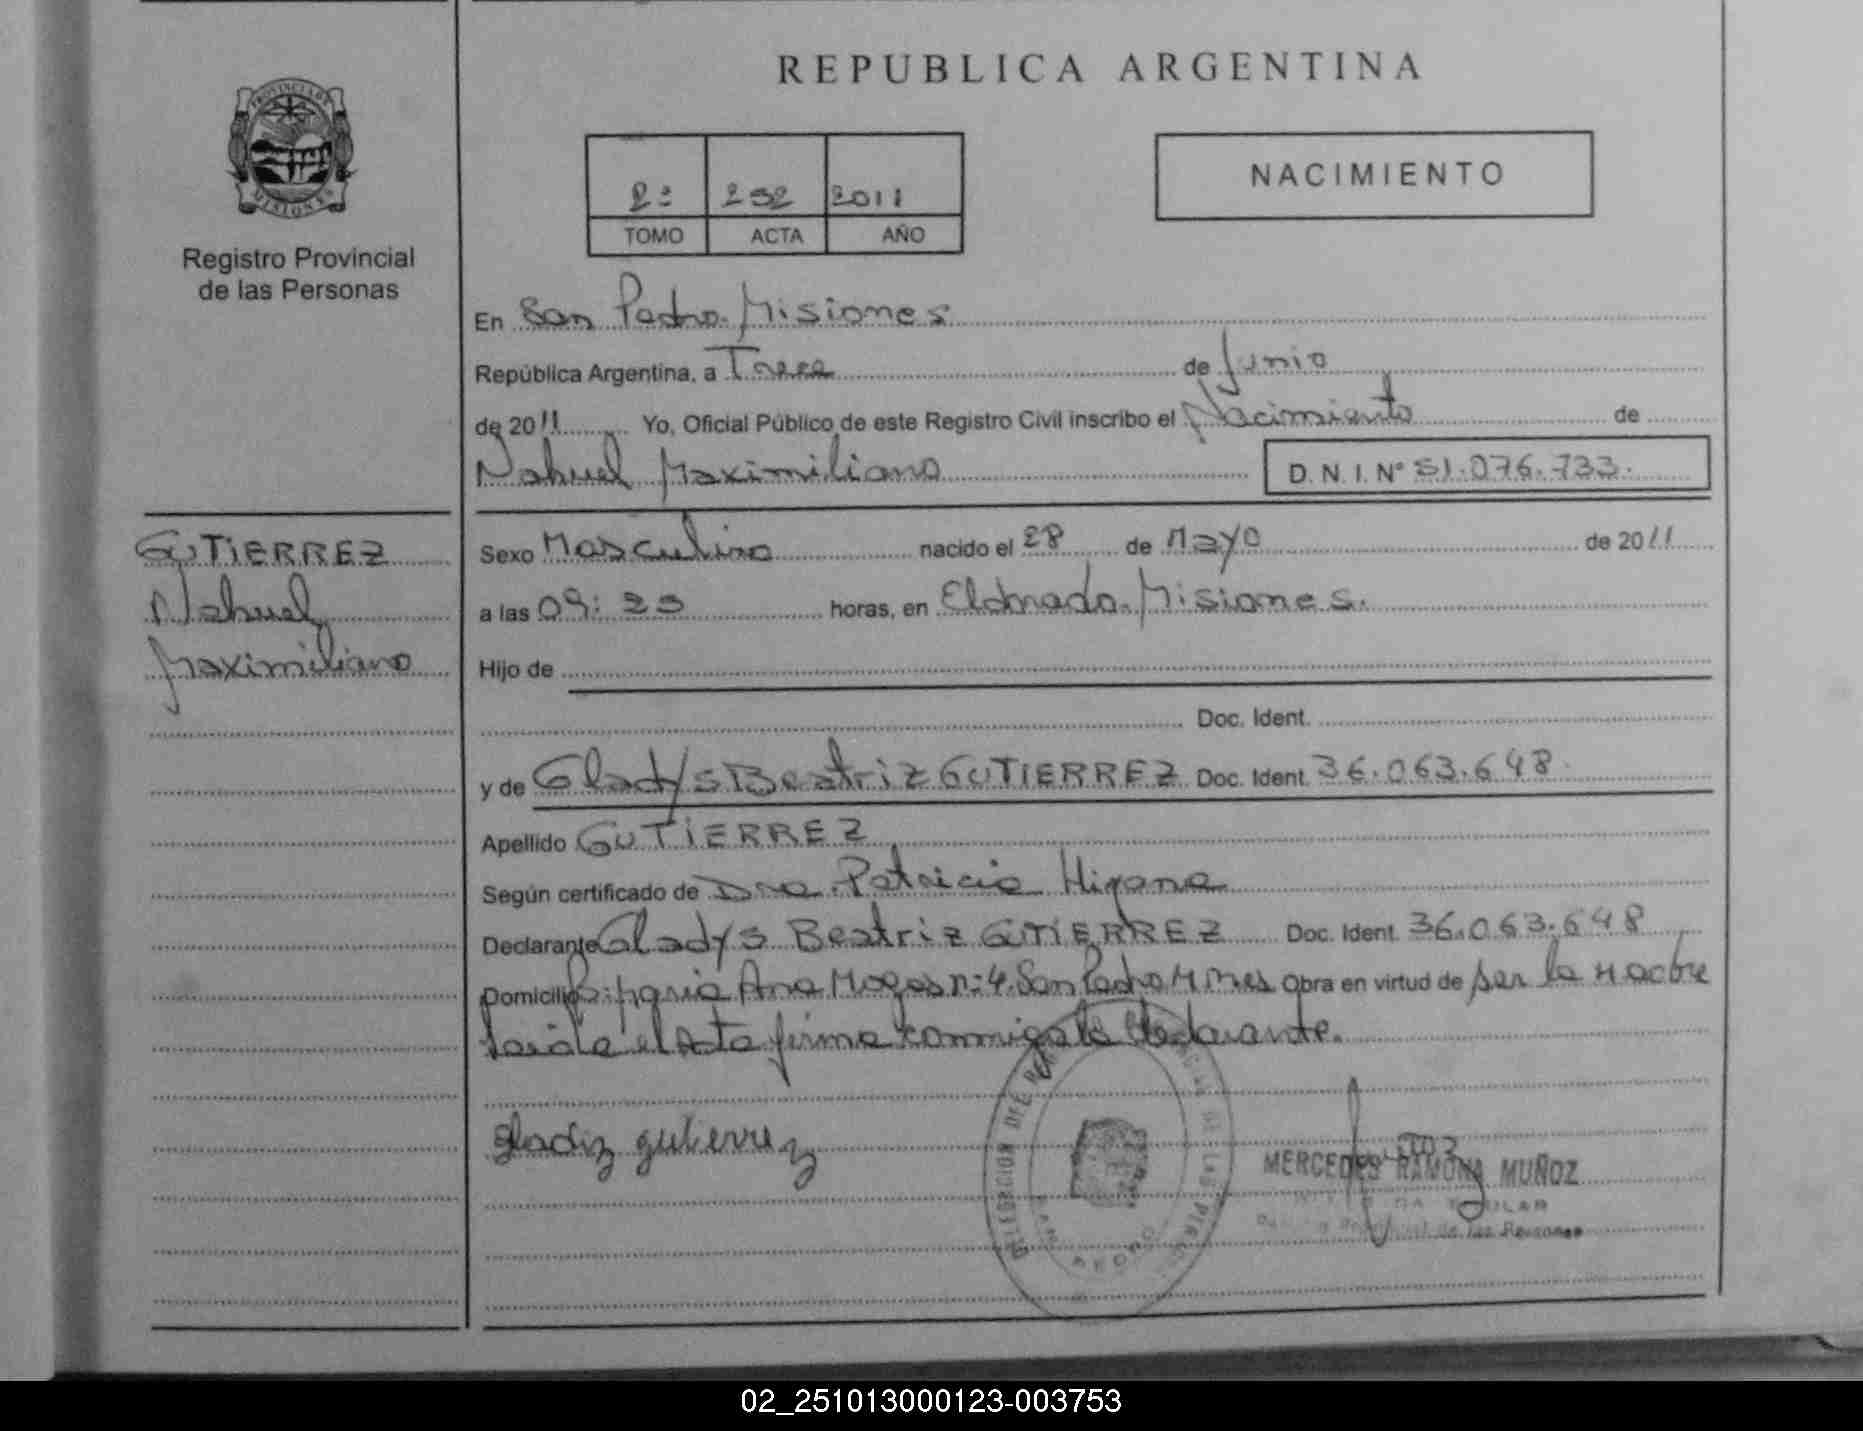 REPUBLICA ARGENTINA
PROVINCIA DE
MISIONES
Registro Provincial
de las Personas
2º 252 2011
TOMO ACTA AÑO
NACIMIENTO
En San Pedro. Misiones
República Argentina, a Trece de Junio
de 2011 Yo, Oficial Público de este Registro Civil inscribo el Nacimiento de
Nahuel Maximiliano D.N.I. Nº 51.076.733.
GUTIERREZ
Nahuel
Maximiliano
Sexo Masculino nacido el 28 de Mayo de 2011
a las 09:25 horas, en Eldorado. Misiones.
Hijo de
Doc. Ident.
y de Gladys Beatriz GUTIERREZ Doc. Ident. 36.063.648
Apellido GUTIERREZ
Según certificado de Dra. Patricia
Declarante Gladys Beatriz GUTIERREZ Doc. Ident. 36.063.648
Domicilio Maria Ana Mogas nº 4. San Pedro Mnes Obra en virtud de ser la Madre
Leida el Acta firma conmigo la declarante.
gladiz gutierrez
MERCEDES RAMONA MUÑOZ
de las Personas
SAN PEDRO
02_251013000123-003753